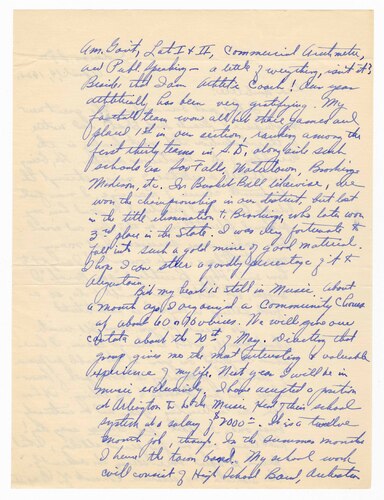 Am. Gov't, Lat I & II, Commercial Arithmetic,
and Publ. Speaking - a little of everything, isn't it?
Besides that I am Athletic Coach! Our year
athletically has been very gratifying. My
football team won all but three games and
placed 1st in our section, ranking among the
first thirty teams in S.D., alongside such
schools as Soo Falls, Watertown, Brookings
Madison, etc. In Basket Ball likewise, we
won the championship in our district, but lost
in the title elimination to Brookings, who later won
3rd place in the State. I was very fortunate to
fall into such a gold mine of good material.
I hope I can steer a goodly percentage of it to
Augustana.
But my heart is still in Music. About
a month ago I organized a Community Chorus
of about 60 or 70 voices. We will give one
Cantata about the 20th of May. Directing that
group gives me the most interesting & valuable
experience of my life. Next year I will be in
music exclusively. I have accepted a position
at Arlington to head the Music Dept of their school
system at a salary of $2000=. It is a twelve
month job, though. In the summer months
I have the town band. My school work
will consist of High School Band, Orchestra